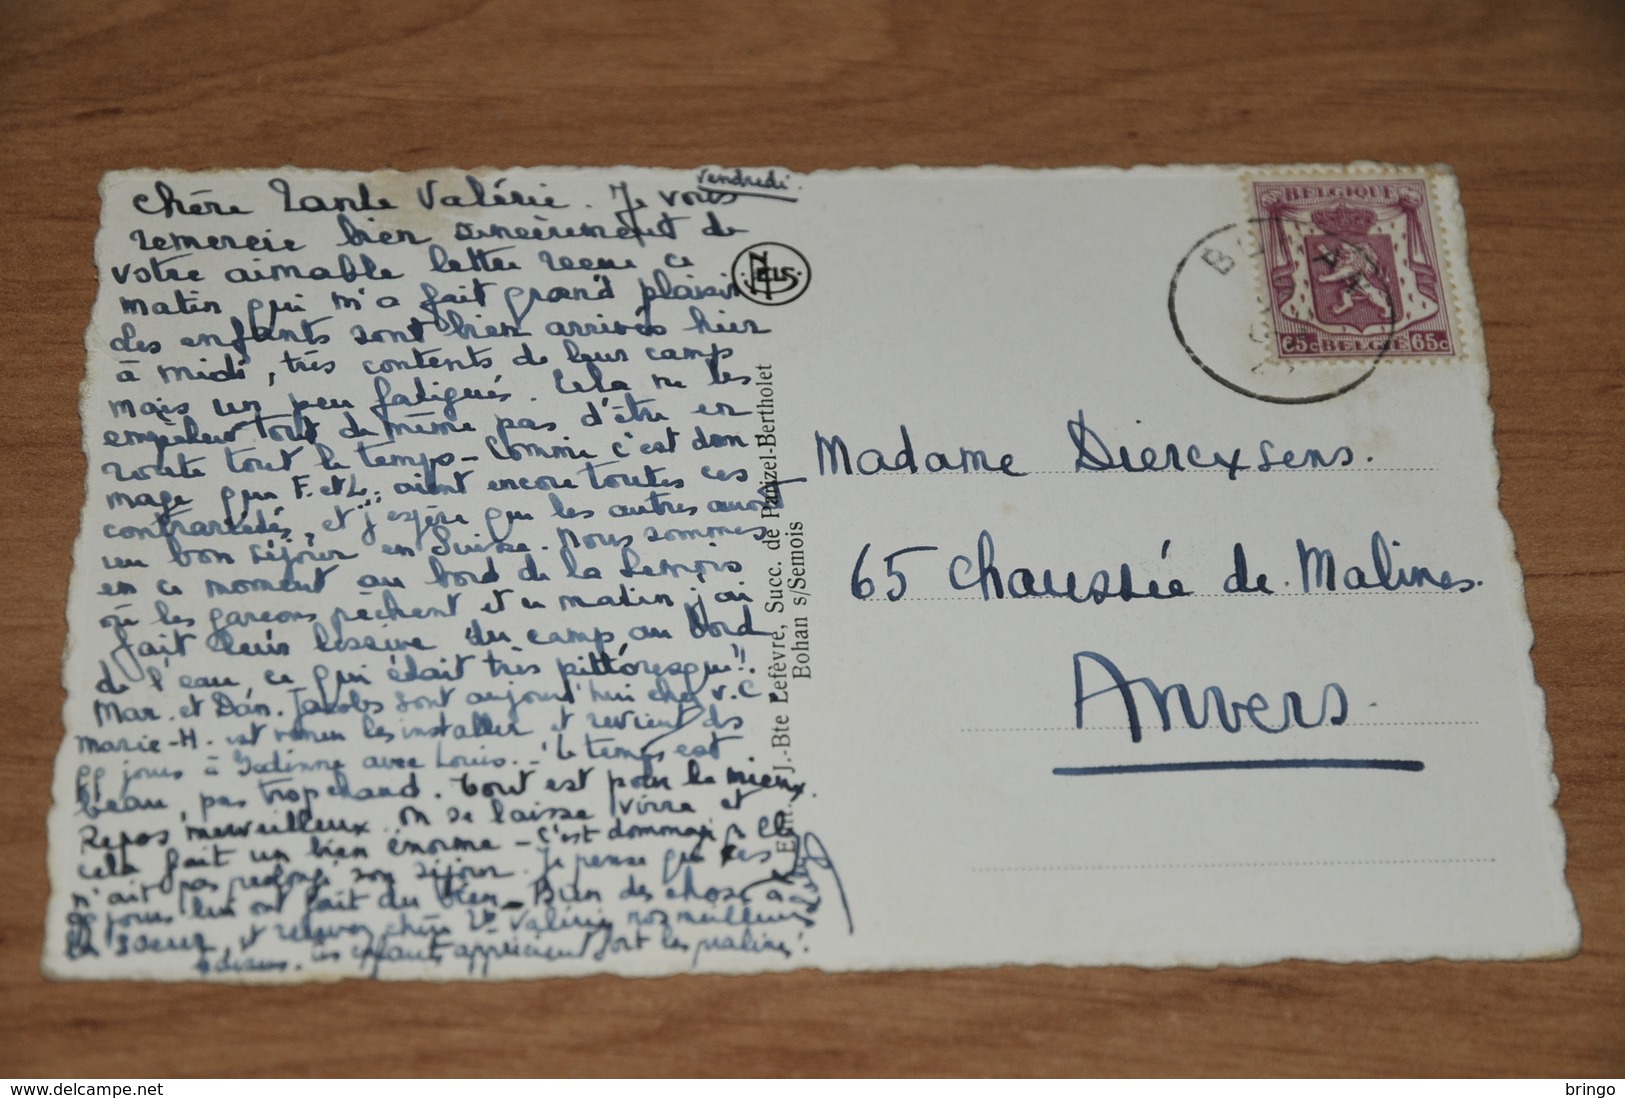 Vendredi.
Chère Tante Valérie. Je vous
remercie bien sincèrement de
votre aimable lettre reçue ce
matin qui m'a fait grand plaisir
les enfants sont bien arrivés hier
à midi, très contents de leur camp
mais un peu fatigués. Cela ne les
empêcher tout de même pas d'être en
route tout le temps - Comme c'est dom
mage que F. et L. aient encore toutes ces
contrariétés, et j'espère que les autres auront
un bon séjour en Suisse. Nous sommes
en ce moment au bord de la Semois
où les garçons pêchent et ce matin j'ai
fait leur lessive du camp au bord
de l'eau, ce qui était très pittoresque!!
Mar. et Dan. Jacobs sont aujourd'hui chez V.C.
Marie-H. est venue les installer et revient
jours à Godinne avec Louis. - Le temps est
beau, pas trop chaud. Tout est pour le mieux.
Repos merveilleux. On se laisse vivre et
cela fait un bien énorme - C'est dommage
n'ait pas prolongé son séjour. Je pense que ces
jours lui ont fait du bien. - Bien des choses à
la soeur, et recevez chère Tte Valérie nos meilleurs
Les enfants apprécient fort les pralines!
NELS
Edit. J.-Bte Lefèvre, Succ. de Panzel-Bertholet
Bohan s/Semois
BELGIQUE
65c BELGIE 65c
BOHAN
Madame Diercxsens.
65 Chaussée de Malines.
Anvers.
delcampe.net
bringo